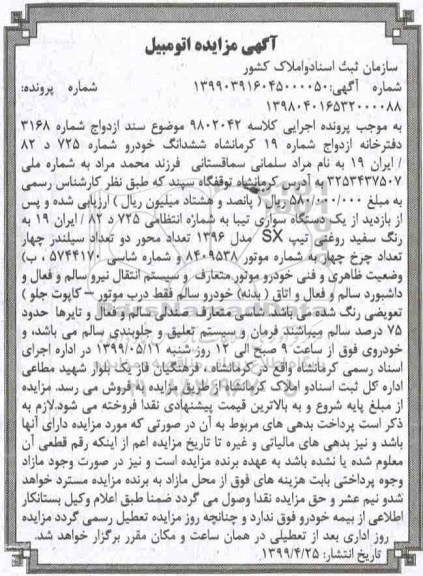 آگهی مزایده اتومبیل
سازمان ثبت اسنادواملاک کشور
شماره آگهی:۱۳۹۹۰۳۹۱۶۰۴۵۰۰۰۰۵۰ شماره پرونده:
۱۳۹۸۰۴۰۱۶۵۳۲۰۰۰۰۸۸
به موجب پرونده اجرایی کلاسه ۹۸۰۲۰۴۲ موضوع سند ازدواج شماره ۳۱۶۸
دفترخانه ازدواج شماره ۱۹ کرمانشاه ششدانگ خودرو شماره ۷۲۵ د ۸۲
/ ایران ۱۹ به نام مراد سلمانی سماقستانی فرزند محمد مراد به شماره ملی
۳۲۵۳۴۳۷۵۰۷ و آدرس کرمانشاه توقفگاه سهند که طبق نظر کارشناس رسمی
به مبلغ ۵۸۰/۰۰۰/۰۰۰ ریال ( پانصد و هشتاد میلیون ریال ) ارزیابی شده و پس
از بازدید از یک دستگاه سواری تیبا به شماره انتظامی ۷۲۵ د ۸۲ / ایران ۱۹ به
رنگ سفید روغنی تیپ SX مدل ۱۳۹۶ تعداد محور دو تعداد سیلندر چهار
تعداد چرخ چهار به شماره موتور ۸۴۰۹۵۳۸ و شماره شاسی ۵۷۴۴۱۷۰ ، ب)
وضعیت ظاهری و فنی خودرو موتور متعارف و سیستم انتقال نیرو سالم و فعال و
داشبورد سالم و فعال و اتاق ( بدنه) خودرو سالم فقط درب موتور – کاپوت جلو )
تعویضی رنگ شده می باشد شاسی متعارف صندلی سالم وفعال و تایرها حدود
۷۵ درصد سالم میباشند فرمان و سیستم تعلیق و جلوبندی سالم می باشد، و
خودروی فوق از ساعت ۹ صبح الی ۱۲ روز شنبه ۱۳۹۹/۰۵/۱۱ در اداره اجرای
اسناد رسمی کرمانشاه واقع در کرمانشاه ، فرهنگیان فاز یک بلوار شهید مطاعی
اداره کل ثبت اسنادو املاک کرمانشاه از طریق مزایده به فروش می رسد. مزایده
از مبلغ پایه شروع و به بالاترین قیمت پیشنهادی نقدا فروخته می شود.لازم به
ذکر است پرداخت بدهی های مربوط به آن در صورتی که مورد مزایده دارای آنها
باشد و نیز بدهی های مالیاتی و غیره تا تاریخ مزایده اعم از اینکه رقم قطعی آن
معلوم شده یا نشده باشد به عهده برنده مزایده است و نیز در صورت وجود مازاد
وجوه پرداختی بابت هزینه های فوق از محل مازاد به برنده مزایده مسترد خواهد
شدو نیم عشر و حق مزایده نقدا وصول می گردد ضمنا طبق اعلام وکیل بستانکار
اطلاعی از بیمه خودرو فوق ندارد و چنانچه روز مزایده تعطیل رسمی گردد مزایده
روز اداری بعد از تعطیلی در همان ساعت و مکان مقرر برگزار خواهد شد.
تاریخ انتشار: ۱۳۹۹/۴/۲۵